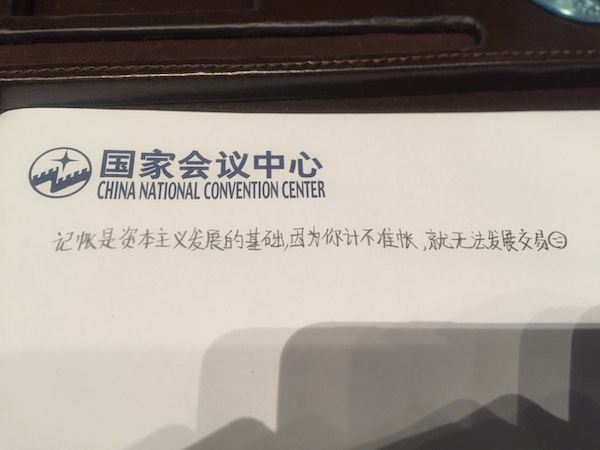 国家会议中心
CHINA NATIONAL CONVENTION CENTER
记帐是资本主义发展的基础,因为你计不准帐,就无法发展交易